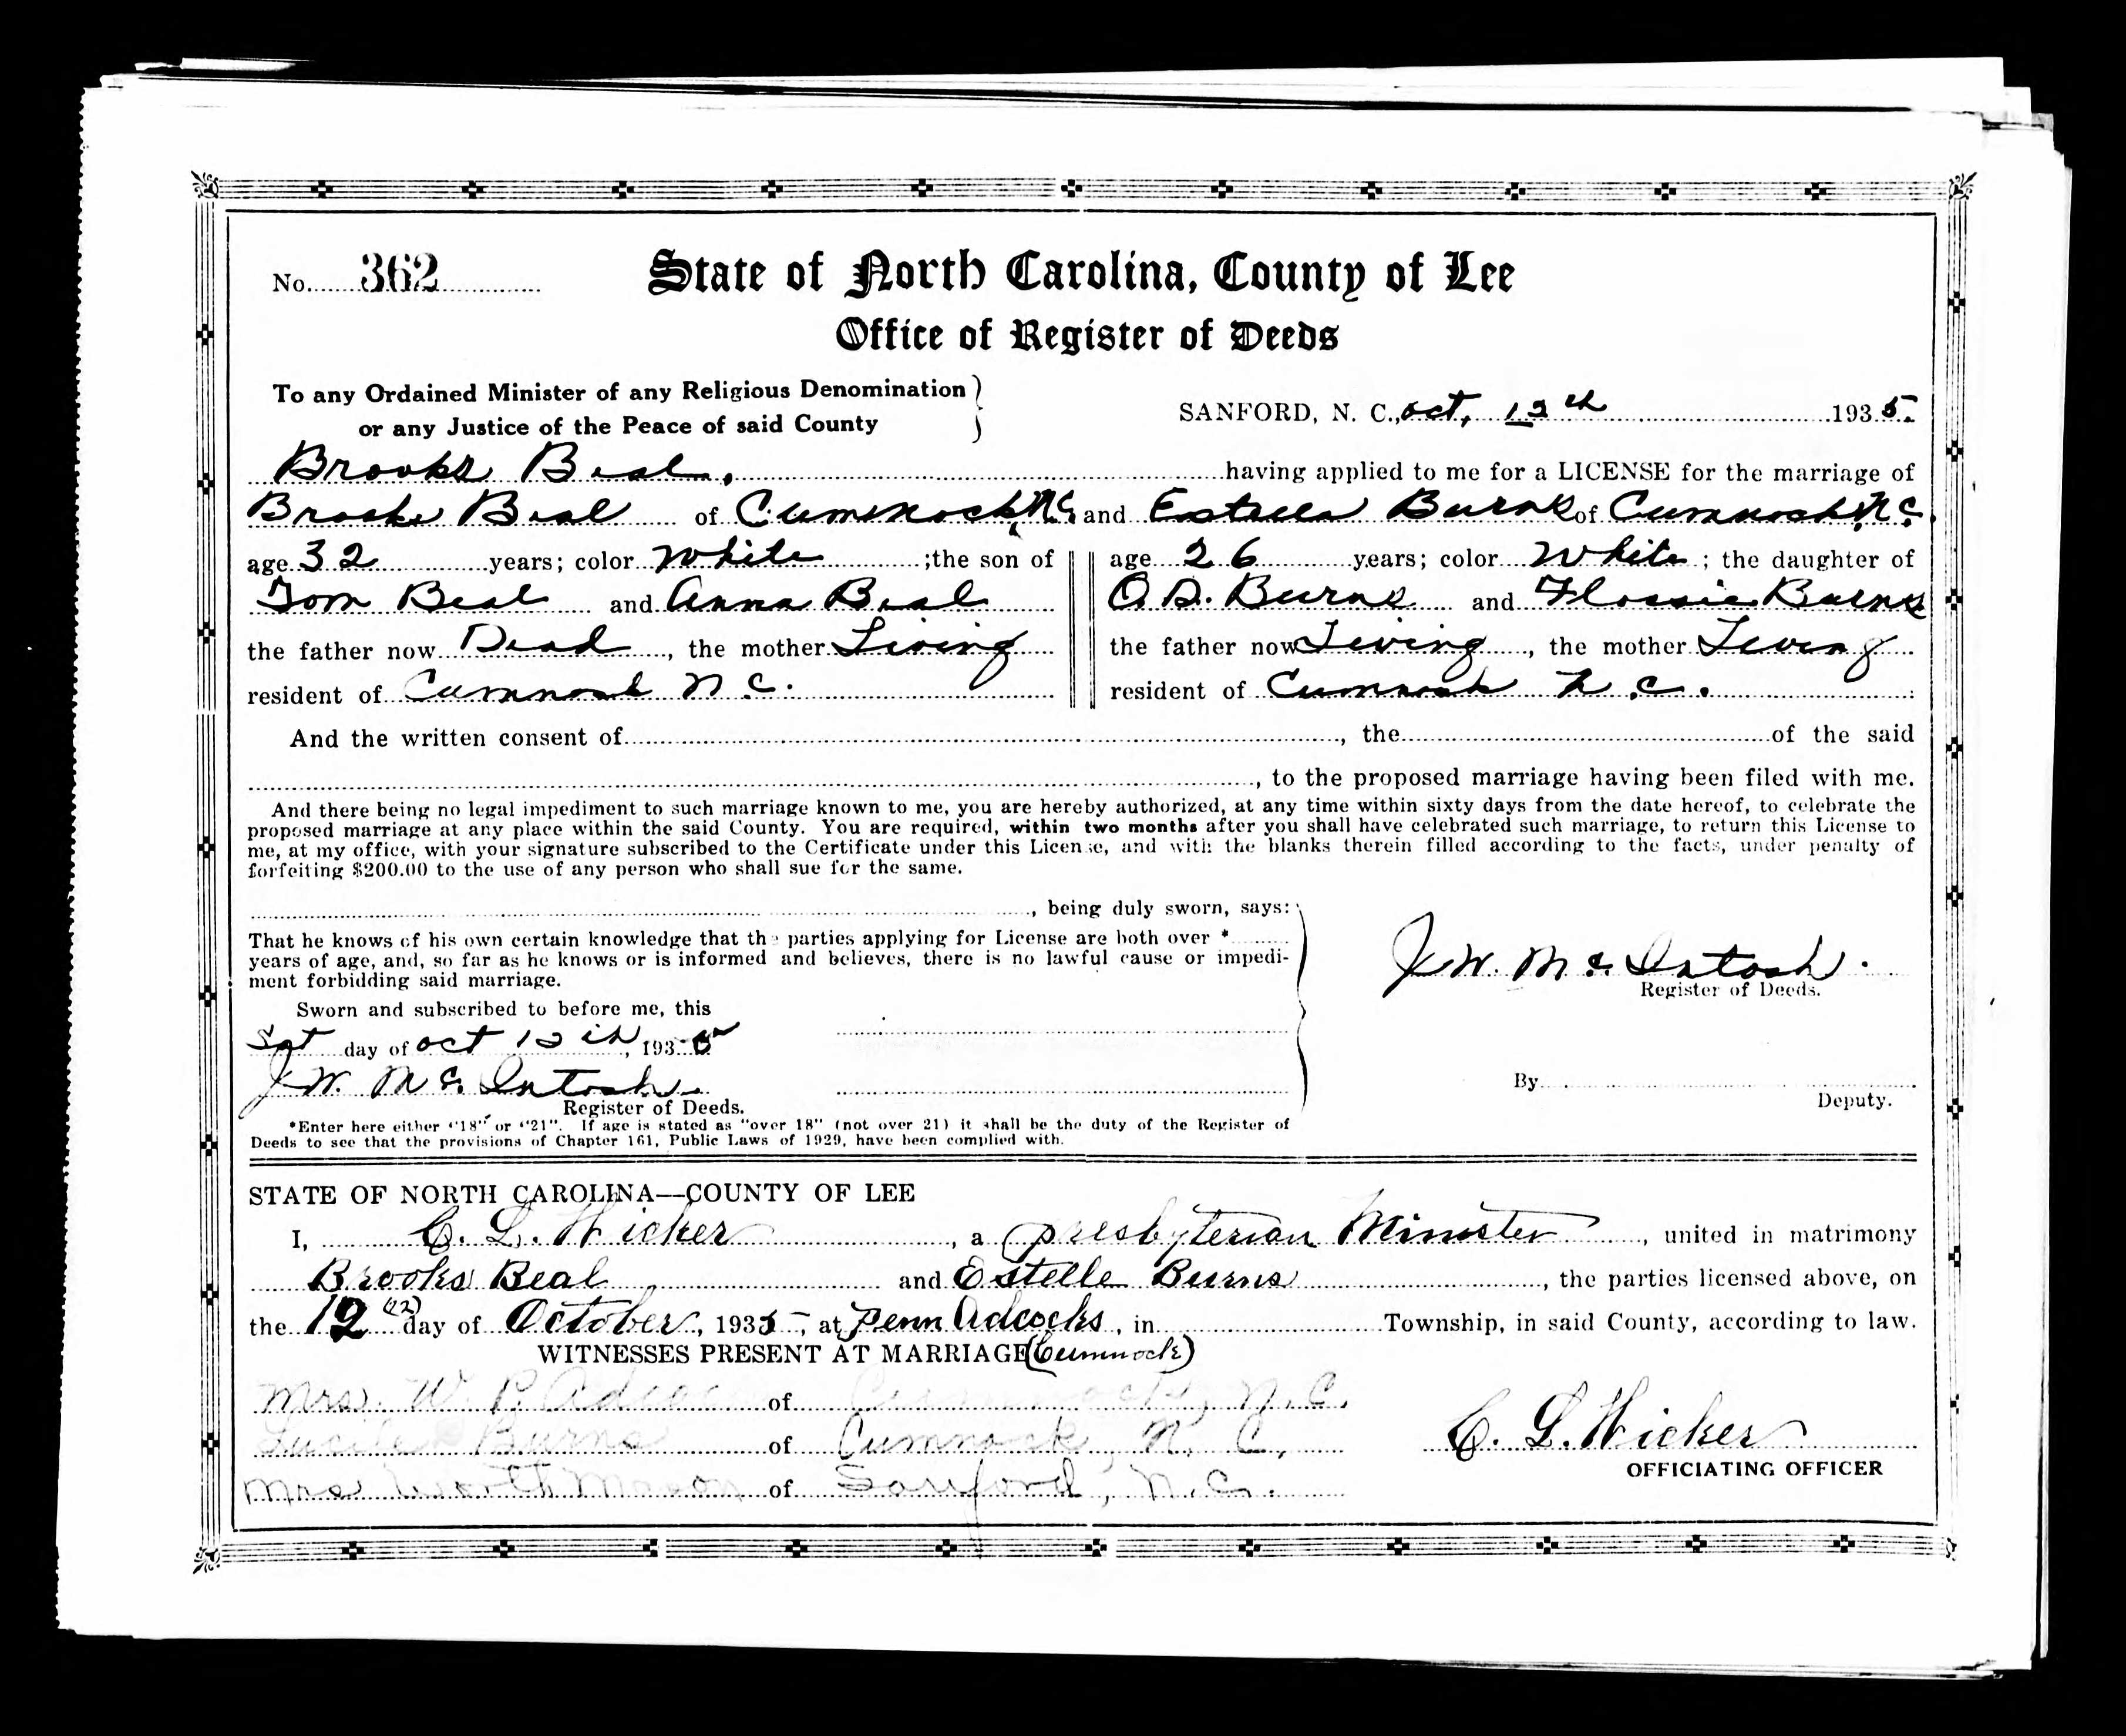 No. 362 State of North Carolina, County of Lee
Office of Register of Deeds
To any Ordained Minister of any Religious Denomination
or any Justice of the Peace of said County
SANFORD, N. C., Oct, 12th 1935.
Brooks Beal, having applied to me for a LICENSE for the marriage of
Brooks Beal of Cummock, N.C. and Estella Burns of Cumnock, N.C.
age 32 years; color White ;the son of
Tom Beal and Anna Beal
the father now Dead, the mother Living
resident of Cumnock N.C.
age 26 years; color White ; the daughter of
O. D. Burns and Flossie Burns
the father now Living, the mother Living
resident of Cumnock N.C.
And the written consent of , the of the said
, to the proposed marriage having been filed with me.
And there being no legal impediment to such marriage known to me, you are hereby authorized, at any time within sixty days from the date hereof, to celebrate the
proposed marriage at any place within the said County. You are required, within two months after you shall have celebrated such marriage, to return this License to
me, at my office, with your signature subscribed to the Certificate under this License, and with the blanks therein filled according to the facts, under penalty of
forfeiting $200.00 to the use of any person who shall sue for the same.
, being duly sworn, says:
That he knows of his own certain knowledge that the parties applying for License are both over *
years of age, and, so far as he knows or is informed and believes, there is no lawful cause or impedi-
ment forbidding said marriage.
Sworn and subscribed to before me, this
Sat day of Oct 12th, 1935
J. W. McIntosh.
Register of Deeds.
J. W. McIntosh.
Register of Deeds.
By
Deputy.
*Enter here either "18" or "21". If age is stated as "over 18" (not over 21) it shall be the duty of the Register of
Deeds to see that the provisions of Chapter 161, Public Laws of 1929, have been complied with.
STATE OF NORTH CAROLINA—COUNTY OF LEE
I, C. L. Wicker, a Presbyterian Minister, united in matrimony
Brooks Beal and Estelle Burns, the parties licensed above, on
the 12 (12) day of October, 1935, at Penn Adcocks, in Township, in said County, according to law.
WITNESSES PRESENT AT MARRIAGE (Cumnock)
Mrs. W. P. Adcock of Cumnock, N.C.
Lucile Burns of Cumnock, N. C.
Mrs Worth of Sanford, N.C.
C. L. Wicker
OFFICIATING OFFICER